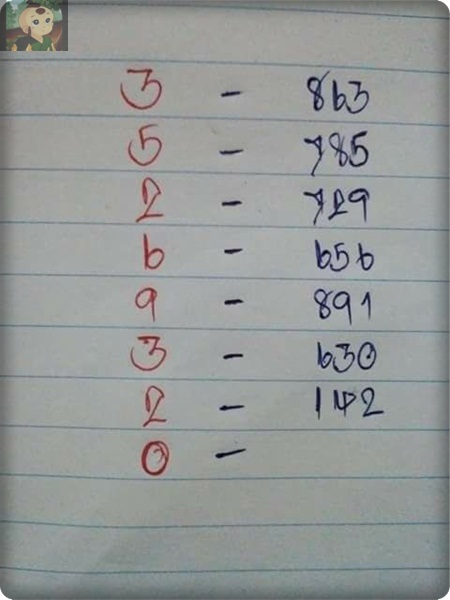 3 - 863
5 - 785
2 - 729
6 - 656
9 - 891
3 - 630
2 - 142
0 -